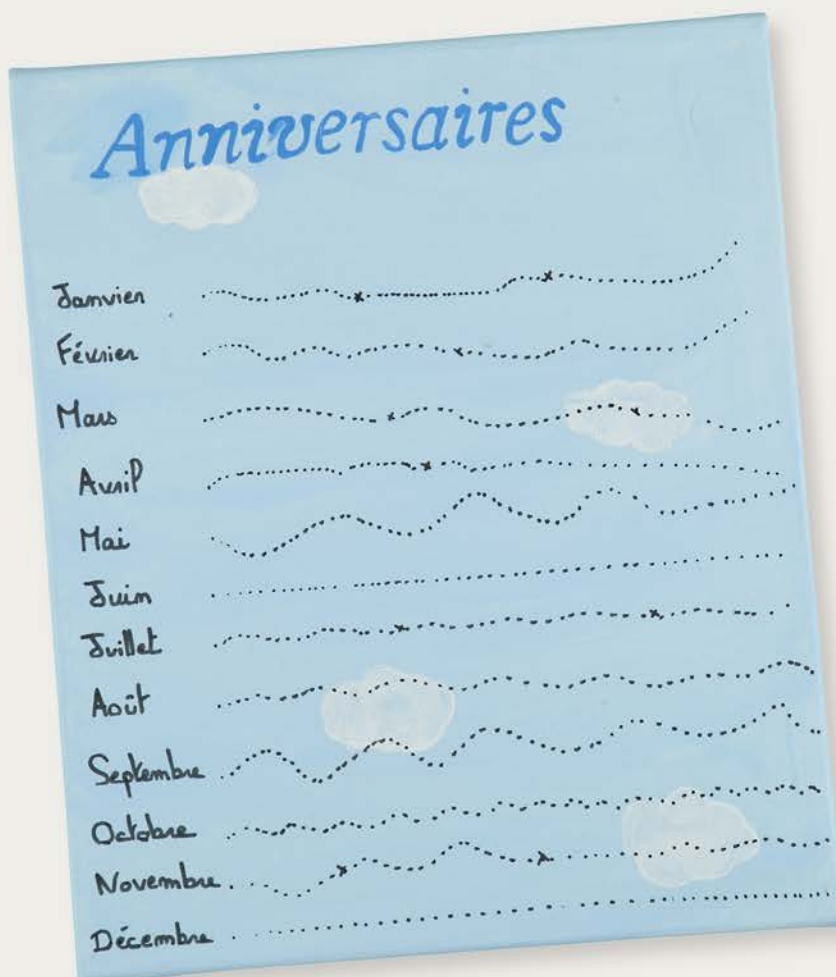 Anniversaires
Janvier
Février
Mars
Avril
Mai
Juin
Juillet
Août
Septembre
Octobre
Novembre
Décembre